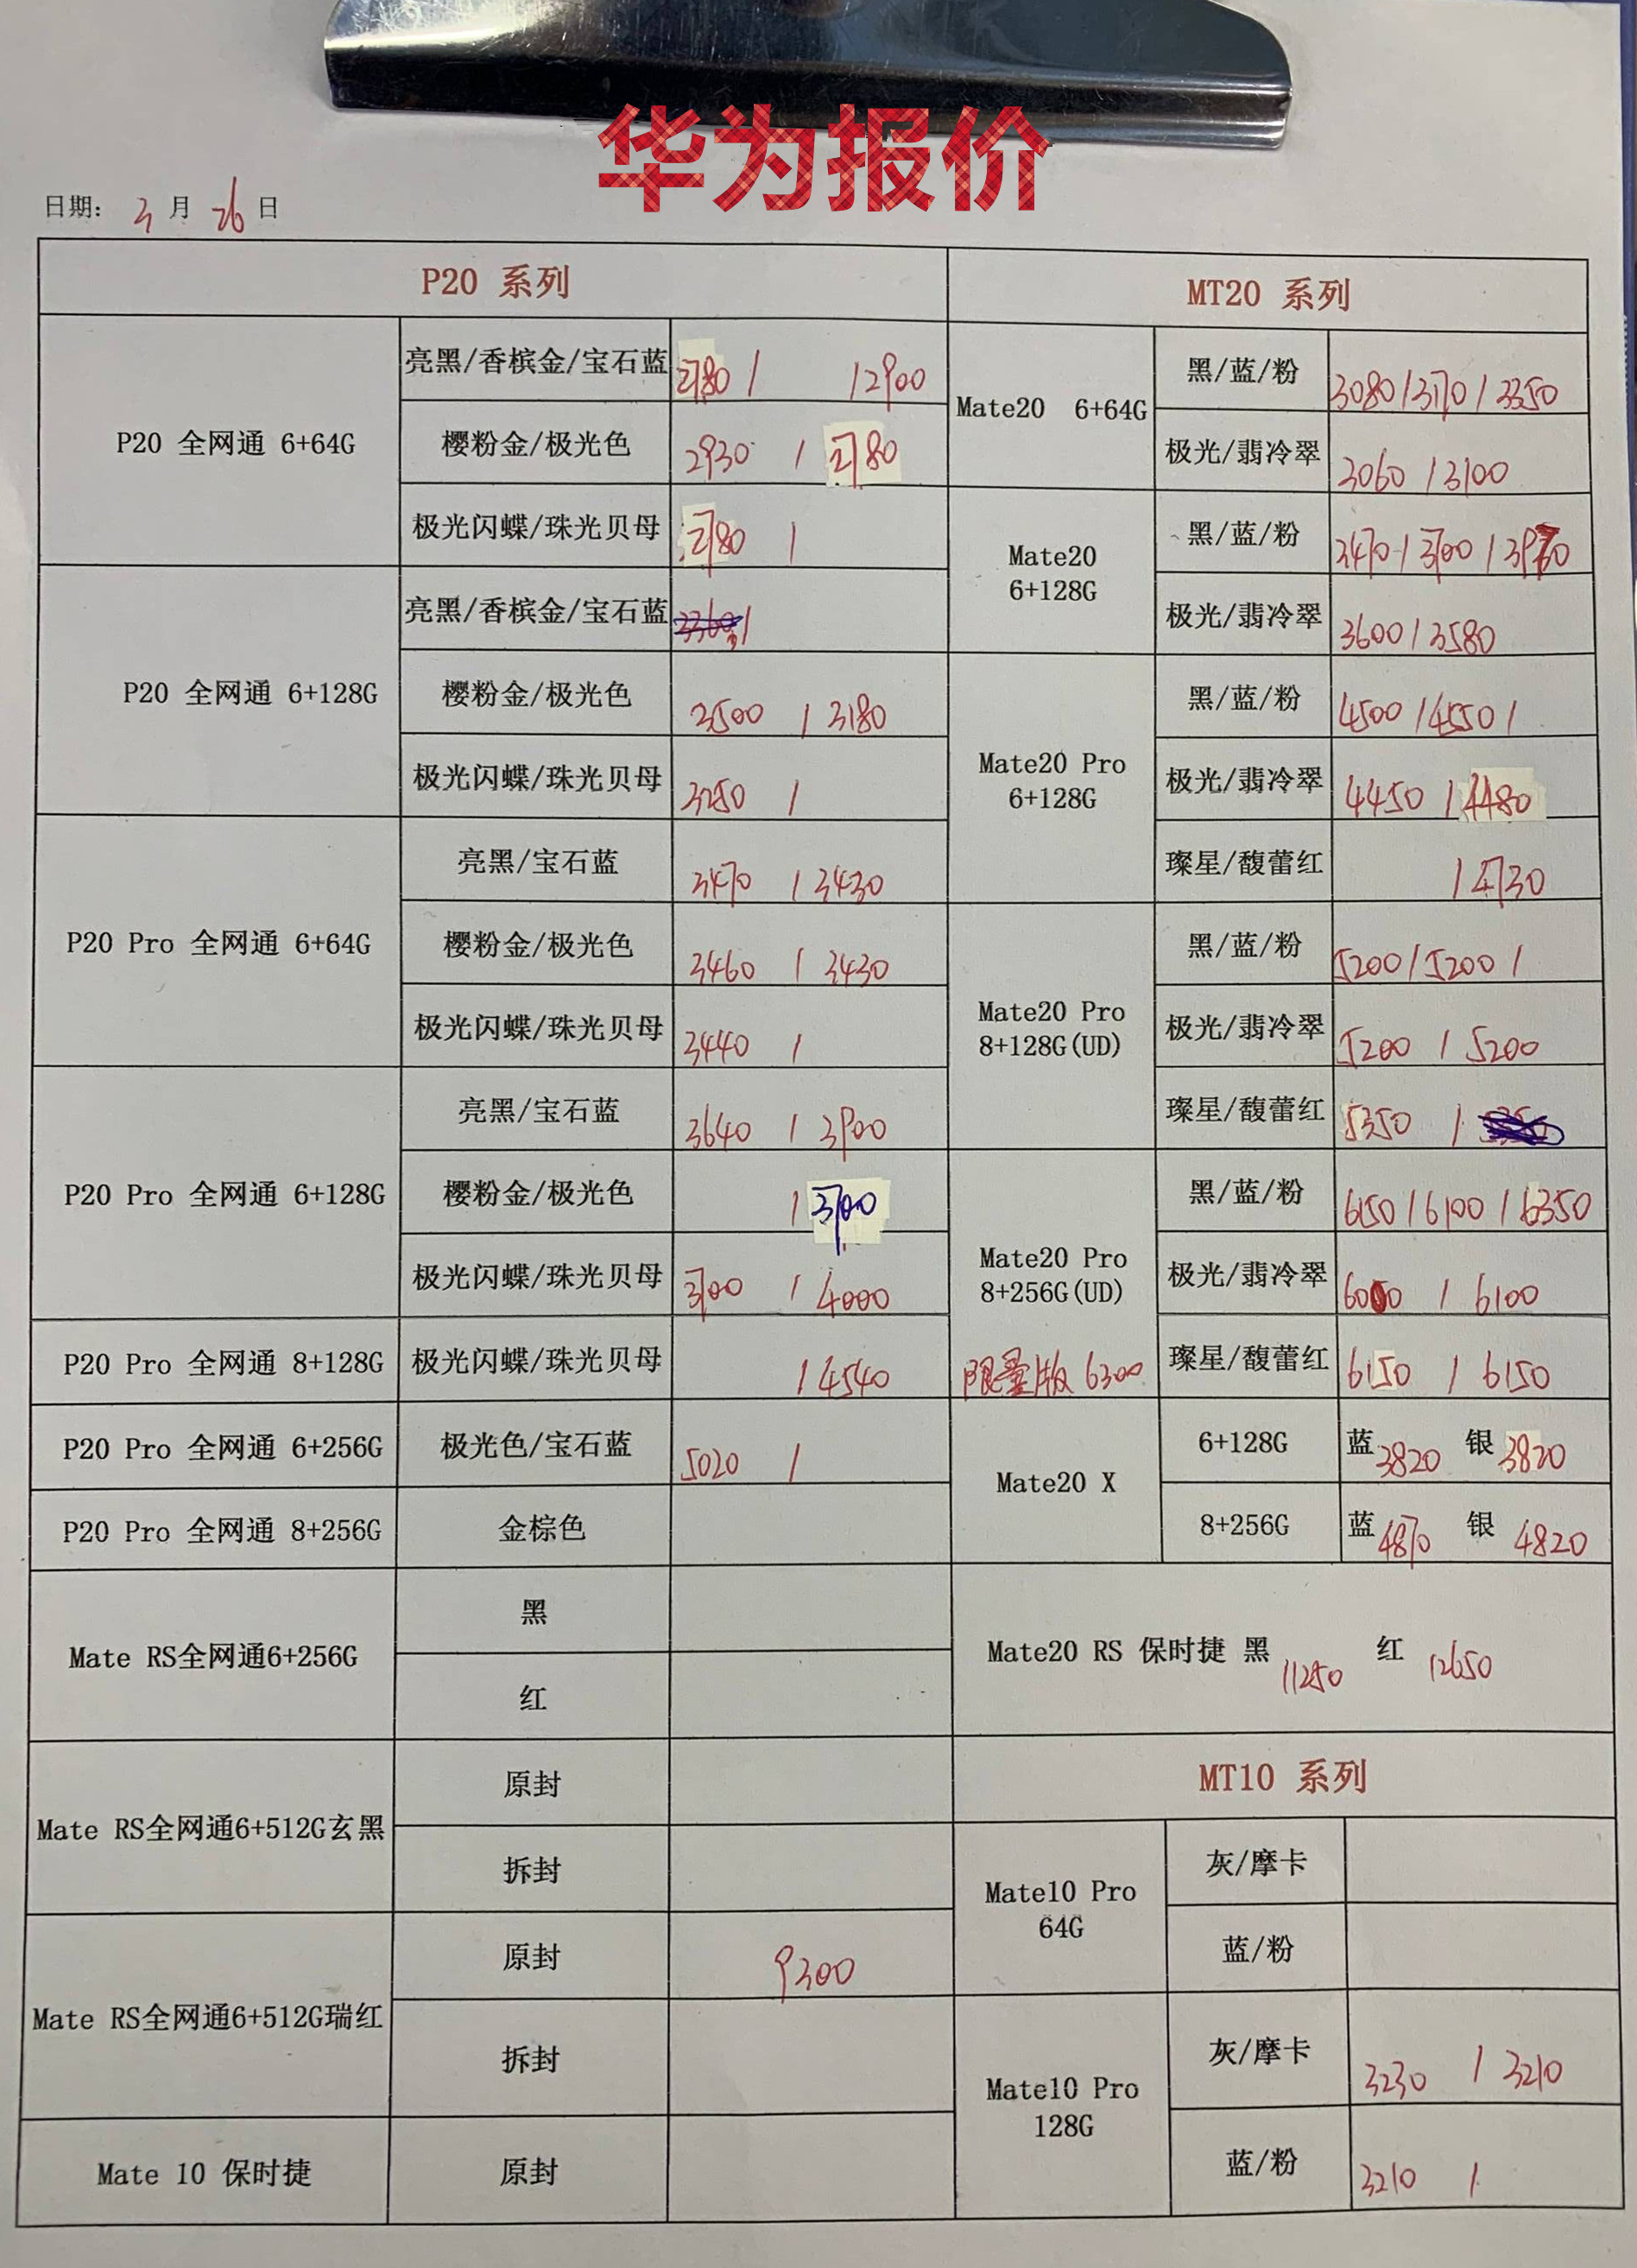 华为报价
日期: 3 月 26 日
P20 系列
P20 全网通 6+64G
亮黑/香槟金/宝石蓝 2780 / / 2900
樱粉金/极光色 2930 / 2780
极光闪蝶/珠光贝母 2780 /
P20 全网通 6+128G
亮黑/香槟金/宝石蓝 /
樱粉金/极光色 3500 / 3180
极光闪蝶/珠光贝母 3250 /
P20 Pro 全网通 6+64G
亮黑/宝石蓝 3470 / 3430
樱粉金/极光色 3460 / 3430
极光闪蝶/珠光贝母 3440 /
P20 Pro 全网通 6+128G
亮黑/宝石蓝 3640 / 3900
樱粉金/极光色 / 3700
极光闪蝶/珠光贝母 3700 / 4000
P20 Pro 全网通 8+128G 极光闪蝶/珠光贝母 / 4540
P20 Pro 全网通 6+256G 极光色/宝石蓝 5020 /
P20 Pro 全网通 8+256G 金棕色
Mate RS全网通6+256G
黑
红
Mate RS全网通6+512G玄黑
原封
拆封
Mate RS全网通6+512G瑞红
原封 9300
拆封
Mate 10 保时捷 原封
MT20 系列
Mate20 6+64G
黑/蓝/粉 3080 / 3170 / 3350
极光/翡冷翠 3060 / 3100
Mate20
6+128G
黑/蓝/粉 3470 / 3700 /
极光/翡冷翠 3600 / 3580
Mate20 Pro
6+128G
黑/蓝/粉 4500 / 4550 /
极光/翡冷翠 4450 / 4480
璨星/馥蕾红 / 4730
Mate20 Pro
8+128G(UD)
黑/蓝/粉 5200 / 5200 /
极光/翡冷翠 5200 / 5200
璨星/馥蕾红 5350 /
Mate20 Pro
8+256G(UD)
限量版 6300
黑/蓝/粉 6150 / 6100 / 6350
极光/翡冷翠 / 6100
璨星/馥蕾红 6150 / 6150
Mate20 X
6+128G 蓝 3820 银 3820
8+256G 蓝 4870 银 4820
Mate20 RS 保时捷 黑 11250 红 12650
MT10 系列
Mate10 Pro
64G
灰/摩卡
蓝/粉
Mate10 Pro
128G
灰/摩卡 3230 / 3210
蓝/粉 3210 /